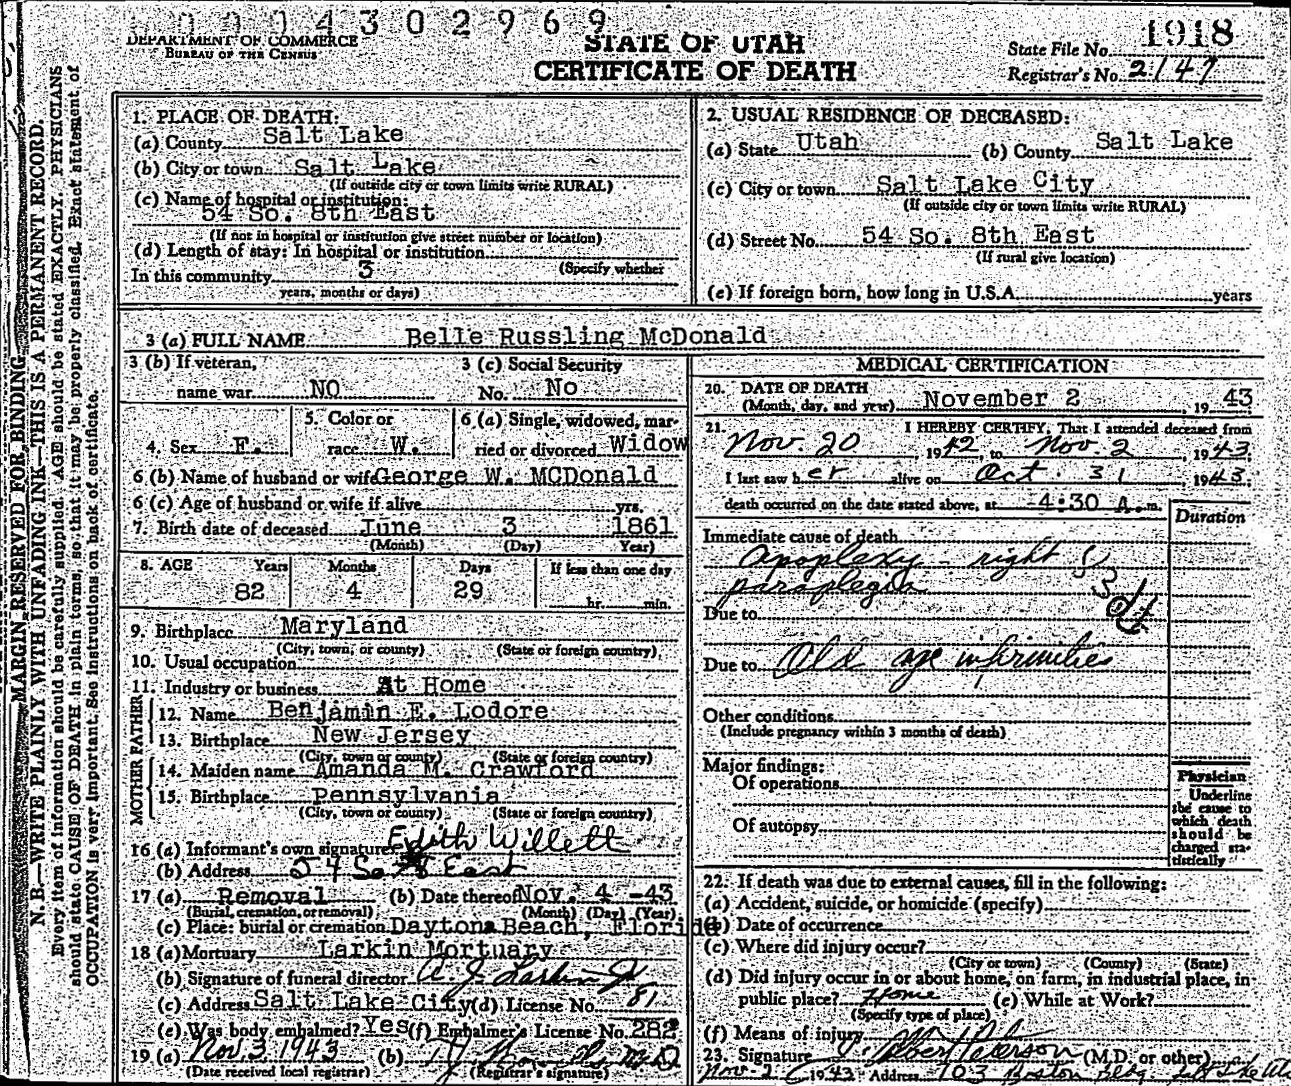 0 0 1 4 3 0 2 9 6 9
DEPARTMENT OF COMMERCE
BUREAU OF THE CENSUS
STATE OF UTAH
CERTIFICATE OF DEATH
State File No. 1918
Registrar's No. 2147
N. B.—WRITE PLAINLY WITH UNFADING INK—THIS IS A PERMANENT RECORD.
MARGIN RESERVED FOR BINDING
Every item of information should be carefully supplied. AGE should be stated EXACTLY. PHYSICIANS
should state CAUSE OF DEATH in plain terms, so that it may be properly classified. Exact statement of
OCCUPATION is very important. See instructions on back of certificate.
1. PLACE OF DEATH:
(a) County Salt Lake
(b) City or town Salt Lake
(If outside city or town limits write RURAL)
(c) Name of hospital or institution:
54 So. 8th East
(If not in hospital or institution give street number or location)
(d) Length of stay: In hospital or institution
(Specify whether
In this community 3
years, months or days)
2. USUAL RESIDENCE OF DECEASED:
(a) State Utah (b) County Salt Lake
(c) City or town Salt Lake City
(If outside city or town limits write RURAL)
(d) Street No. 54 So. 8th East
(If rural give location)
(e) If foreign born, how long in U.S.A. years
3 (a) FULL NAME Belle Russling McDonald
3 (b) If veteran, 3 (c) Social Security
name war NO No. No
4. Sex F. 5. Color or race W. 6 (a) Single, widowed, married or divorced Widow
6 (b) Name of husband or wife George W. MCDonald
6 (c) Age of husband or wife if alive yrs.
7. Birth date of deceased June 3 1861
(Month) (Day) Year)
8. AGE Years Months Days If less than one day
82 4 29 hr. min.
9. Birthplace Maryland
(City, town, or county) (State or foreign country)
10. Usual occupation
11. Industry or business At Home
FATHER
12. Name Benjamin E. Lodore
13. Birthplace New Jersey
(City, town or county) (State or foreign country)
MOTHER
14. Maiden name Amanda M. Crawford
15. Birthplace Pennsylvania
(City, town or county) (State or foreign country)
16 (a) Informant's own signature Edith Willett
(b) Address 54 So 8 East
17 (a) Removal (b) Date thereof Nov. 4 -43
(Burial, cremation, or removal) (Month) (Day) (Year)
(c) Place: burial or cremation Daytona Beach, Florida
18 (a) Mortuary Larkin Mortuary
(b) Signature of funeral director A J Larkin Jr
(c) Address Salt Lake City (d) License No. 81
(e) Was body embalmed? Yes (f) Embalmer's License No. 282
19 (a) Nov 3 1943 (b) M.D.
(Date received local registrar) (Registrar's signature)
MEDICAL CERTIFICATION
20. DATE OF DEATH
(Month, day, and year) November 2, 19 43
21. I HEREBY CERTIFY, That I attended deceased from
Nov. 20, 1942, to Nov. 2, 1943.
I last saw her alive on Oct. 31, 1943.
death occurred on the date stated above, at 4:30 A.m.
Duration
Immediate cause of death
Apoplexy - right
paraplegia
Due to
Due to Old age infirmities
Other conditions
(Include pregnancy within 3 months of death)
Major findings:
Of operations
Of autopsy
Physician
Underline
the cause to
which death
should be
charged sta-
tistically
22. If death was due to external causes, fill in the following:
(a) Accident, suicide, or homicide (specify)
(b) Date of occurrence
(c) Where did injury occur?
(City or town) (County) (State)
(d) Did injury occur in or about home, on farm, in industrial place, in
public place? Home (e) While at Work?
(Specify type of place)
(f) Means of injury
23. Signature Peterson (M.D. or other)
Nov-2 1943 Address 703 Boston Bldg.